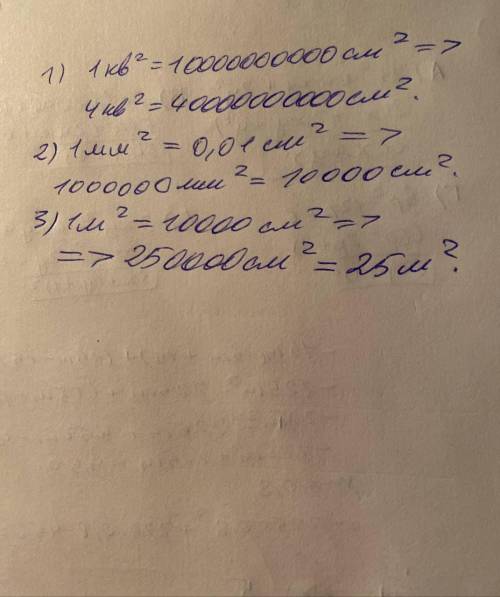 1) 1кв² = 10000000000см² =>
4кв² = 40000000000см².
2) 1мм² = 0,01см² =>
1000000мм² = 10000см².
3) 1м² = 10000см² =>
=> 250000см² = 25м².